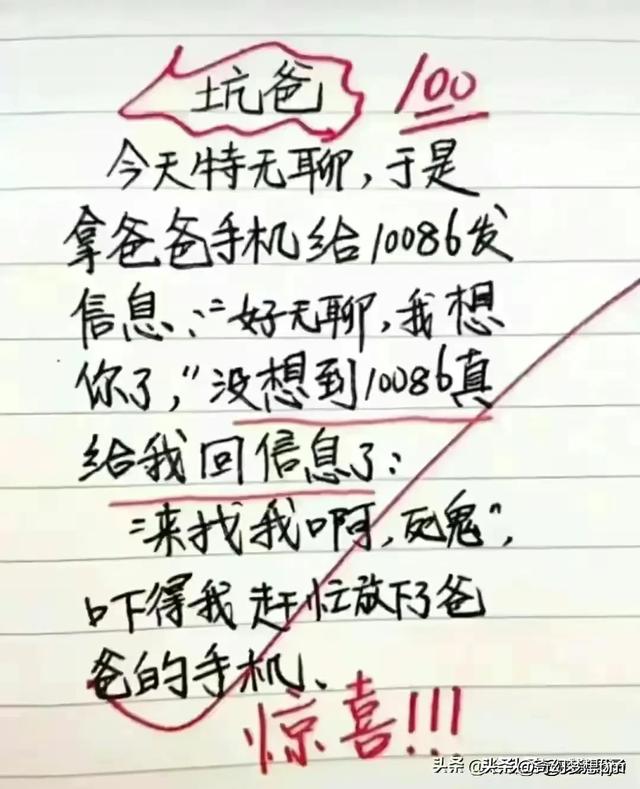 坑爸
100
今天特无聊,于是
拿爸爸手机给10086发
信息:“好无聊,我想
你了,”没想到10086真
给我回信息了:
“来找我啊,死鬼”,
吓得我赶忙放下了爸
爸的手机、
惊喜!!!
头条 @